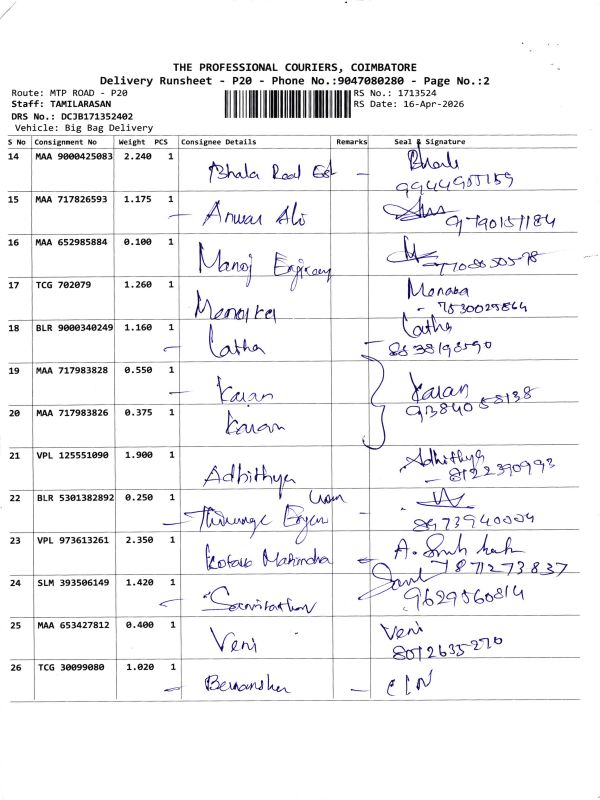 THE PROFESSIONAL COURIERS, COIMBATORE
Delivery Runsheet - P20 - Phone No.:9047080280 - Page No.:2
Route: MTP ROAD - P20 RS No.: 1713524
Staff: TAMILARASAN RS Date: 16-Apr-2026
DRS No.: DCJB171352402
Vehicle: Big Bag Delivery
S No Consignment No Weight PCS Consignee Details Remarks Seal & Signature
14 MAA 9000425083 2.240 1 Bhala Real Est
15 MAA 717826593 1.175 1 Anwar Ali 9790151184
16 MAA 652985884 0.100 1 Manoj
17 TCG 702079 1.260 1 7530029864
18 BLR 9000340249 1.160 1 Latha Latha
8838198590
19 MAA 717983828 0.550 1 Karan Karan
9384058138
20 MAA 717983826 0.375 1 Karan
21 VPL 125551090 1.900 1 Adhithya Adhithya
8122390993
22 BLR 5301382892 0.250 1
8973940004
23 VPL 973613261 2.350 1 Kotak Mahindra A.
7871273837
24 SLM 393506149 1.420 1
9629560814
25 MAA 653427812 0.400 1 Veni Veni
8012635270
26 TCG 30099080 1.020 1